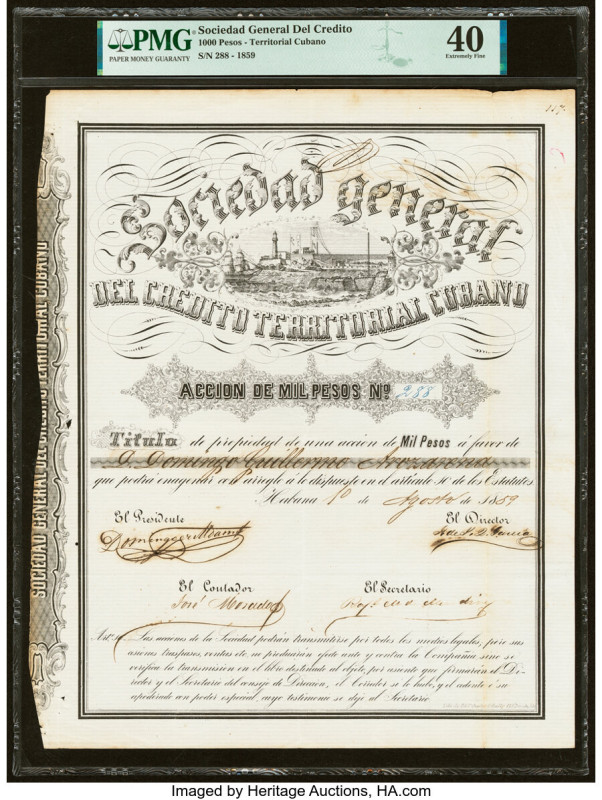 PMG
PAPER MONEY GUARANTY
Sociedad General Del Credito
1000 Pesos - Territorial Cubano
S/N 288 - 1859
40
Extremely Fine
117.
Sociedad general
DEL CREDITO TERRITORIAL CUBANO
ACCION DE MIL PESOS Nº 288
Titulo de propiedad de una accion de Mil Pesos á favor de
D. Domingo Guillermo Arozarena
que podrá enagenar con arreglo á lo dispuesto en el artículo 10 de los Estatutos
Habana 1º de Agosto de 1859
El Presidente
El Director
El Contador
El Secretario
José
Art. 10. Las acciones de la Sociedad podrán transmitirse por todos los medios legales, pero sus
traspasos, ventas etc. no producirán efecto ante y contra la Compañia, sino se
verifica la transmision en el libro destinado al objeto, por asiento que firmarán el Di-
rector y el Secretario del consejo de Direccion, el Corredor si lo hubo, y el cedente ó su
apoderado con poder especial, cuyo testimonio se deje al Secretario
SOCIEDAD GENERAL DEL CREDITO TERRITORIAL CUBANO
Imaged by Heritage Auctions, HA.com